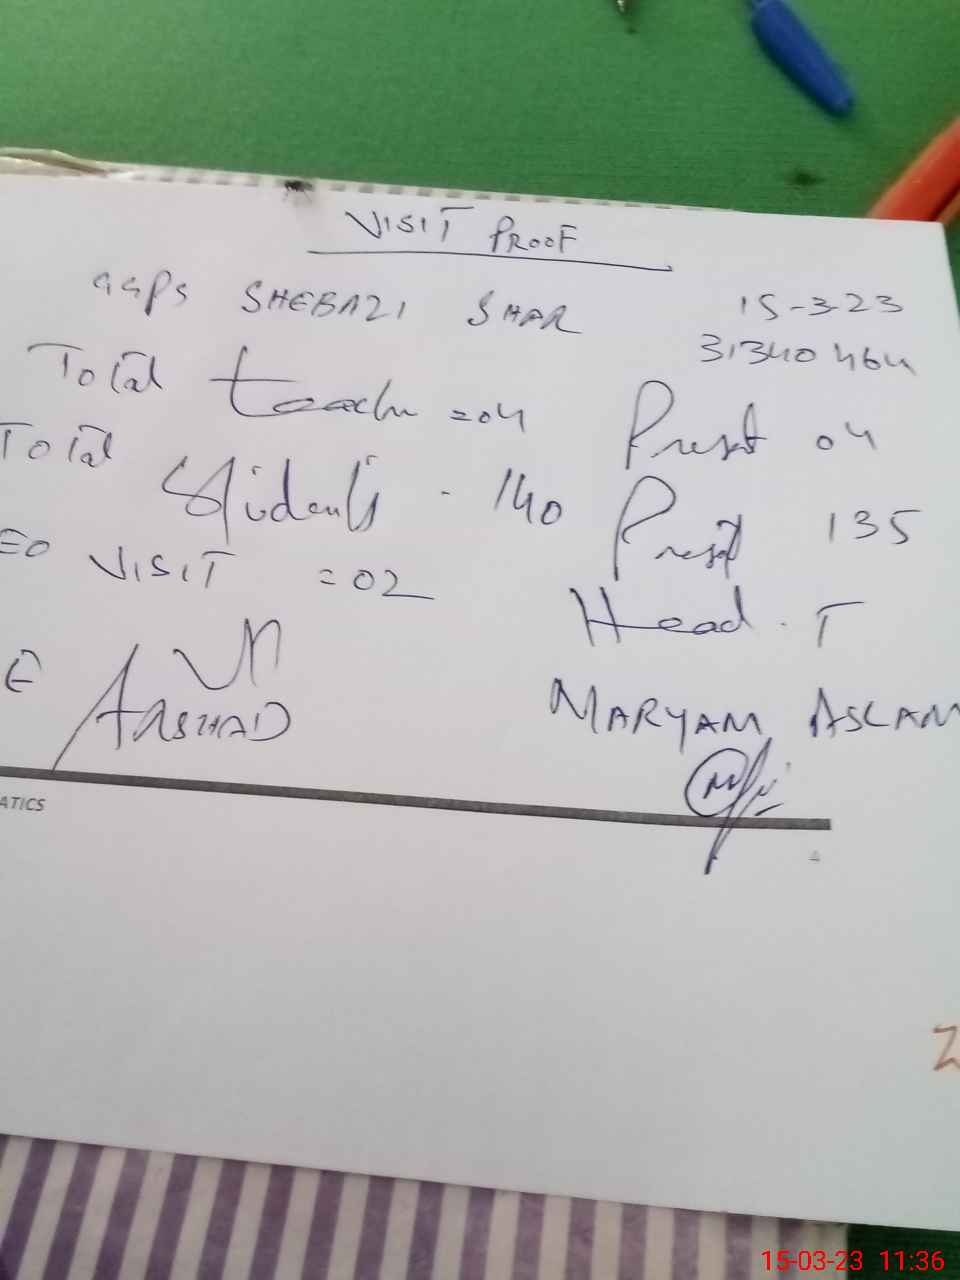 VISIT PROOF
GGPS SHEBAZI SHAR 15-3-23
31340464
Total teach =04 Preset 04
Total Students - 140 Preset 135
EO VISIT =02 Head.T
E ARSHAD MARYAM ASLAM
ATICS
4
15-03-23 11:36